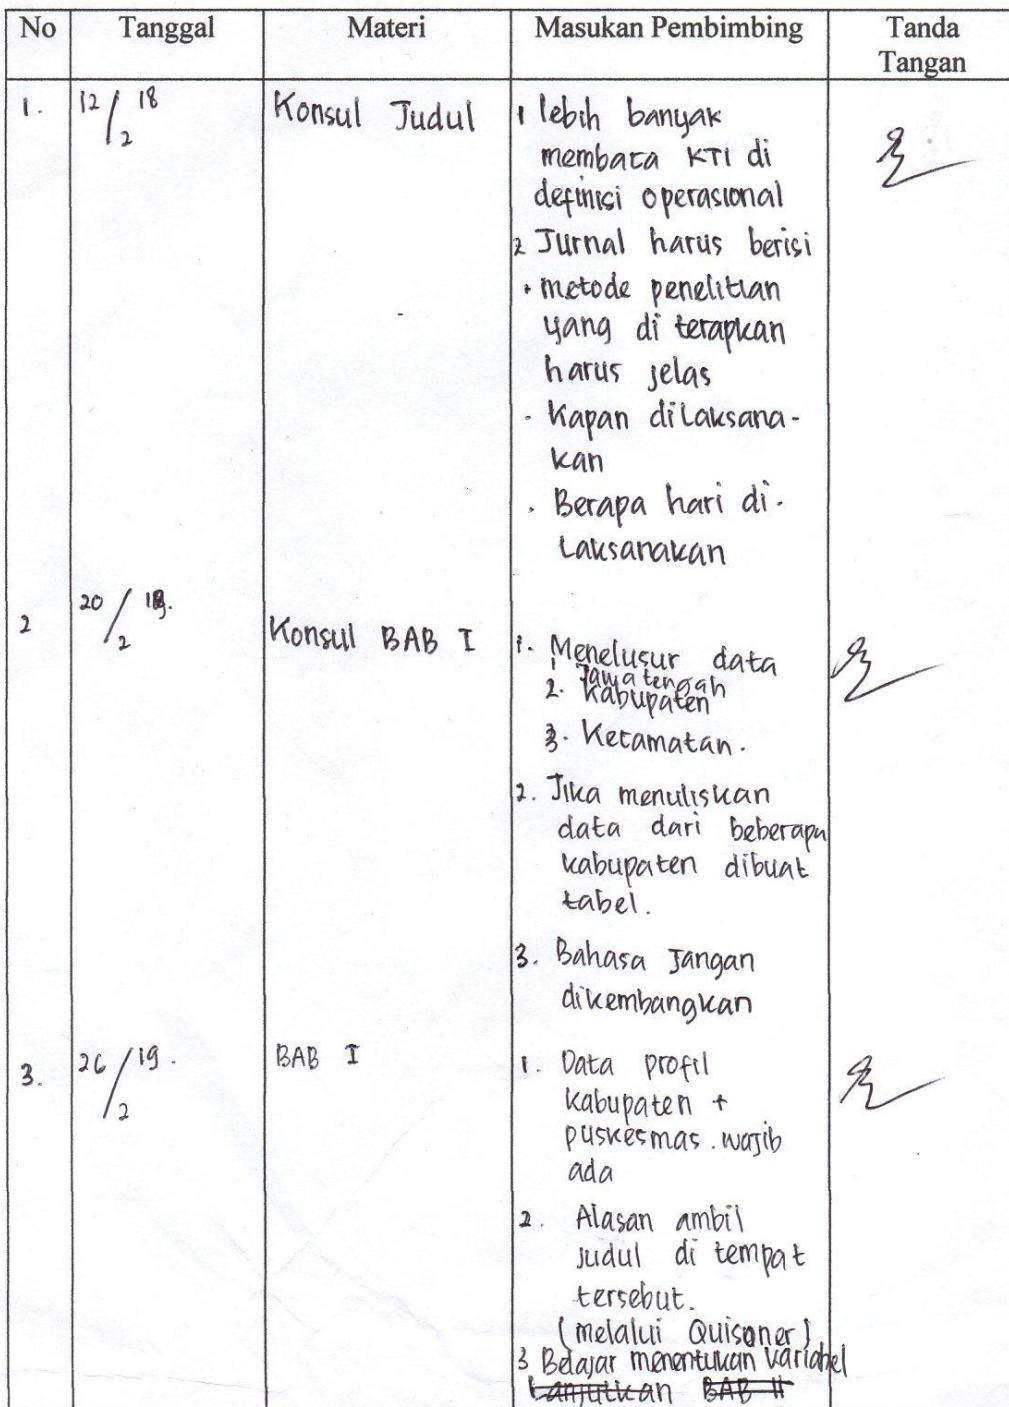 No Tanggal Materi Masukan Pembimbing Tanda Tangan
1. 12/2 18 Konsul Judul 1 lebih banyak
membaca KTI di
definisi operasional
2 Jurnal harus berisi
• metode penelitian
yang di terapkan
harus jelas
- Kapan dilaksana-
kan
. Berapa hari di-
Laksanakan
2 20/2 Konsul BAB I 1. Menelusur data
1 Jawa tengah
2. Kabupaten
3. Kecamatan.
2. Jika menuliskan
data dari beberapa
kabupaten dibuat
tabel.
3. Bahasa Jangan
dikembangkan
3. 26/2 19. BAB I 1. Data profil
Kabupaten +
puskesmas. wajib
ada
2. Alasan ambil
Judul di tempat
tersebut.
(melalui Quisoner)
3 Belajar menentukan variabel
Lanjutkan BAB II